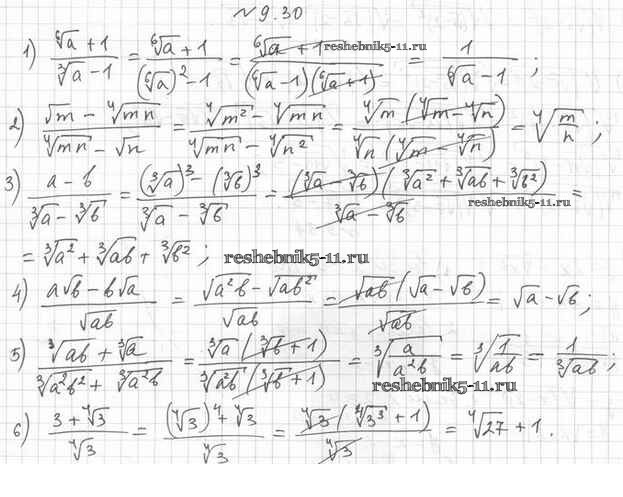 № 9.30
1) (⁶√a + 1)/(³√a − 1) = (⁶√a + 1)/((⁶√a)² − 1) = (⁶√a + 1)/((⁶√a − 1)(⁶√a + 1)) = 1/(⁶√a − 1) ;
reshebnik5-11.ru
2) (√m − ⁴√mn)/(⁴√mn − √n) = (⁴√m² − ⁴√mn)/(⁴√mn − ⁴√n²) = (⁴√m (⁴√m − ⁴√n))/(⁴√n (⁴√m − ⁴√n)) = ⁴√(m/n) ;
3) (a − b)/(³√a − ³√b) = ((³√a)³ − (³√b)³)/(³√a − ³√b) = ((³√a − ³√b)(³√a² + ³√ab + ³√b²))/(³√a − ³√b) =
reshebnik5-11.ru
= ³√a² + ³√ab + ³√b² ;
reshebnik5-11.ru
4) (a√b − b√a)/√ab = (√a²b − √ab²)/√ab = (√ab (√a − √b))/√ab = √a − √b ;
5) (³√ab + ³√a)/(³√a²b² + ³√a²b) = (³√a (³√b + 1))/(³√a²b (³√b + 1)) = ³√(a/a²b) = ³√(1/ab) = 1/³√ab ;
reshebnik5-11.ru
6) (3 + ⁴√3)/⁴√3 = ((⁴√3)⁴ + ⁴√3)/⁴√3 = (⁴√3 (⁴√3³ + 1))/⁴√3 = ⁴√27 + 1 .